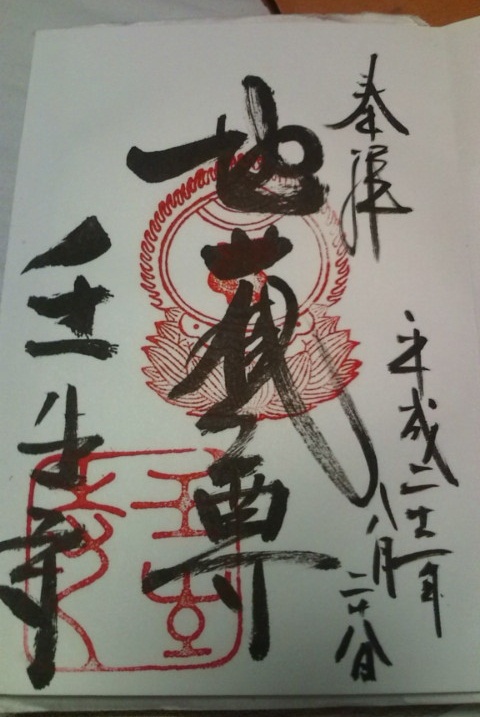 奉拝
平成二十一年
八月二十八日
地蔵尊
壬生寺